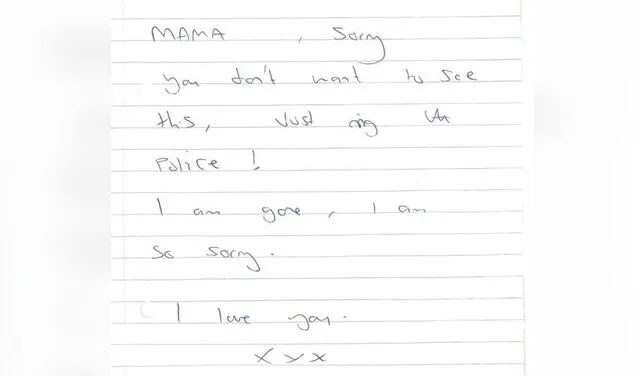 MAMA , Sorry
you don't want to see
this, Just ring the
Police !
I am gone, I am
so sorry.
I love you.
x y x